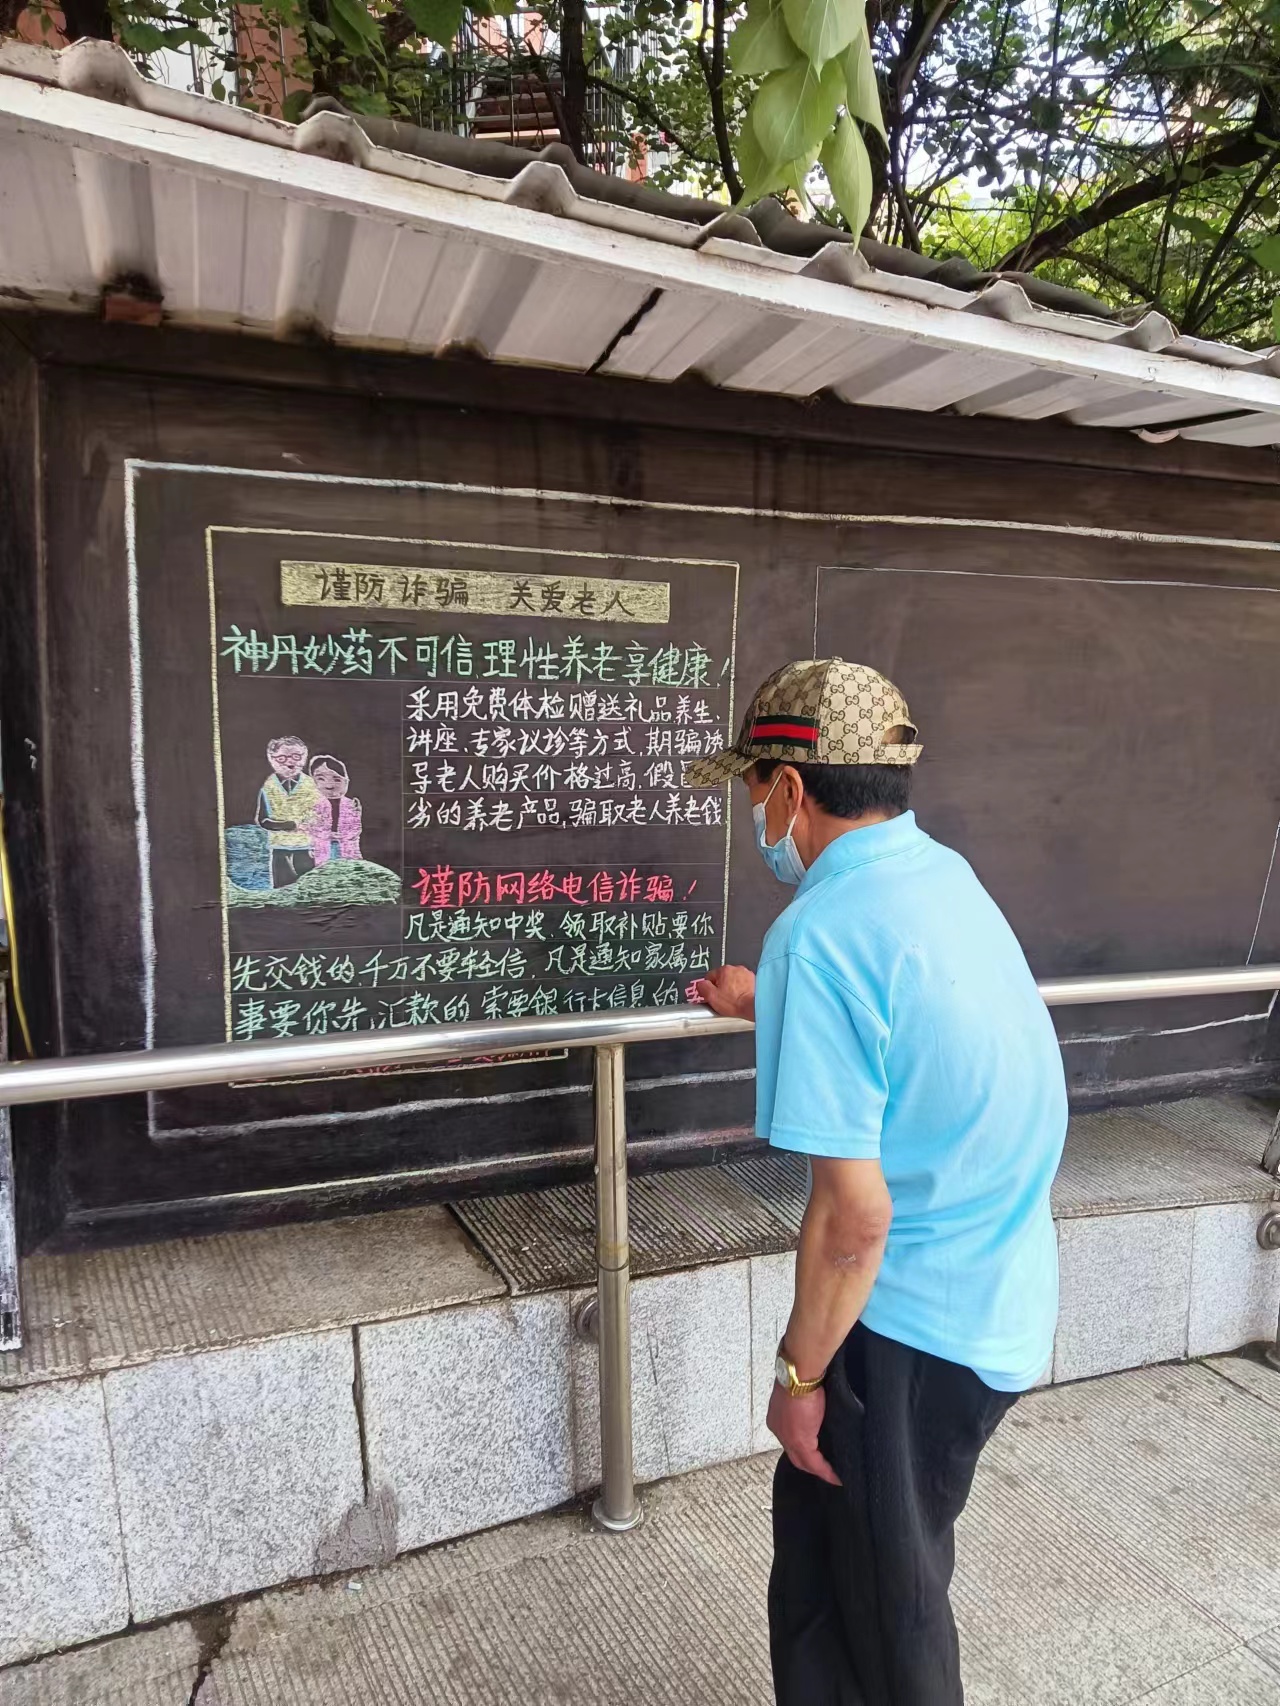 谨防诈骗 关爱老人
神丹妙药不可信,理性养老享健康!
采用免费体检赠送礼品养生、
讲座、专家议诊等方式,期骗诱
导老人购买价格过高,假
劣的养老产品,骗取老人养老钱
谨防网络电信诈骗!
凡是通知中奖、领取补贴,要你
先交钱的,千万不要轻信,凡是通知家属出
事要你先汇款的 索要银行卡信息的